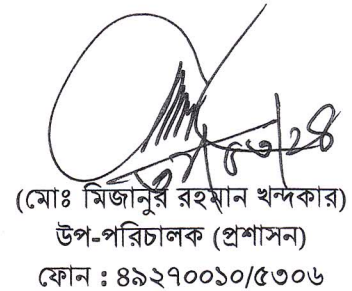 (মোঃ মিজানুর রহমান খন্দকার)
উপ-পরিচালক (প্রশাসন)
ফোন : ৪৯২৭০০১০/৫৩০৬